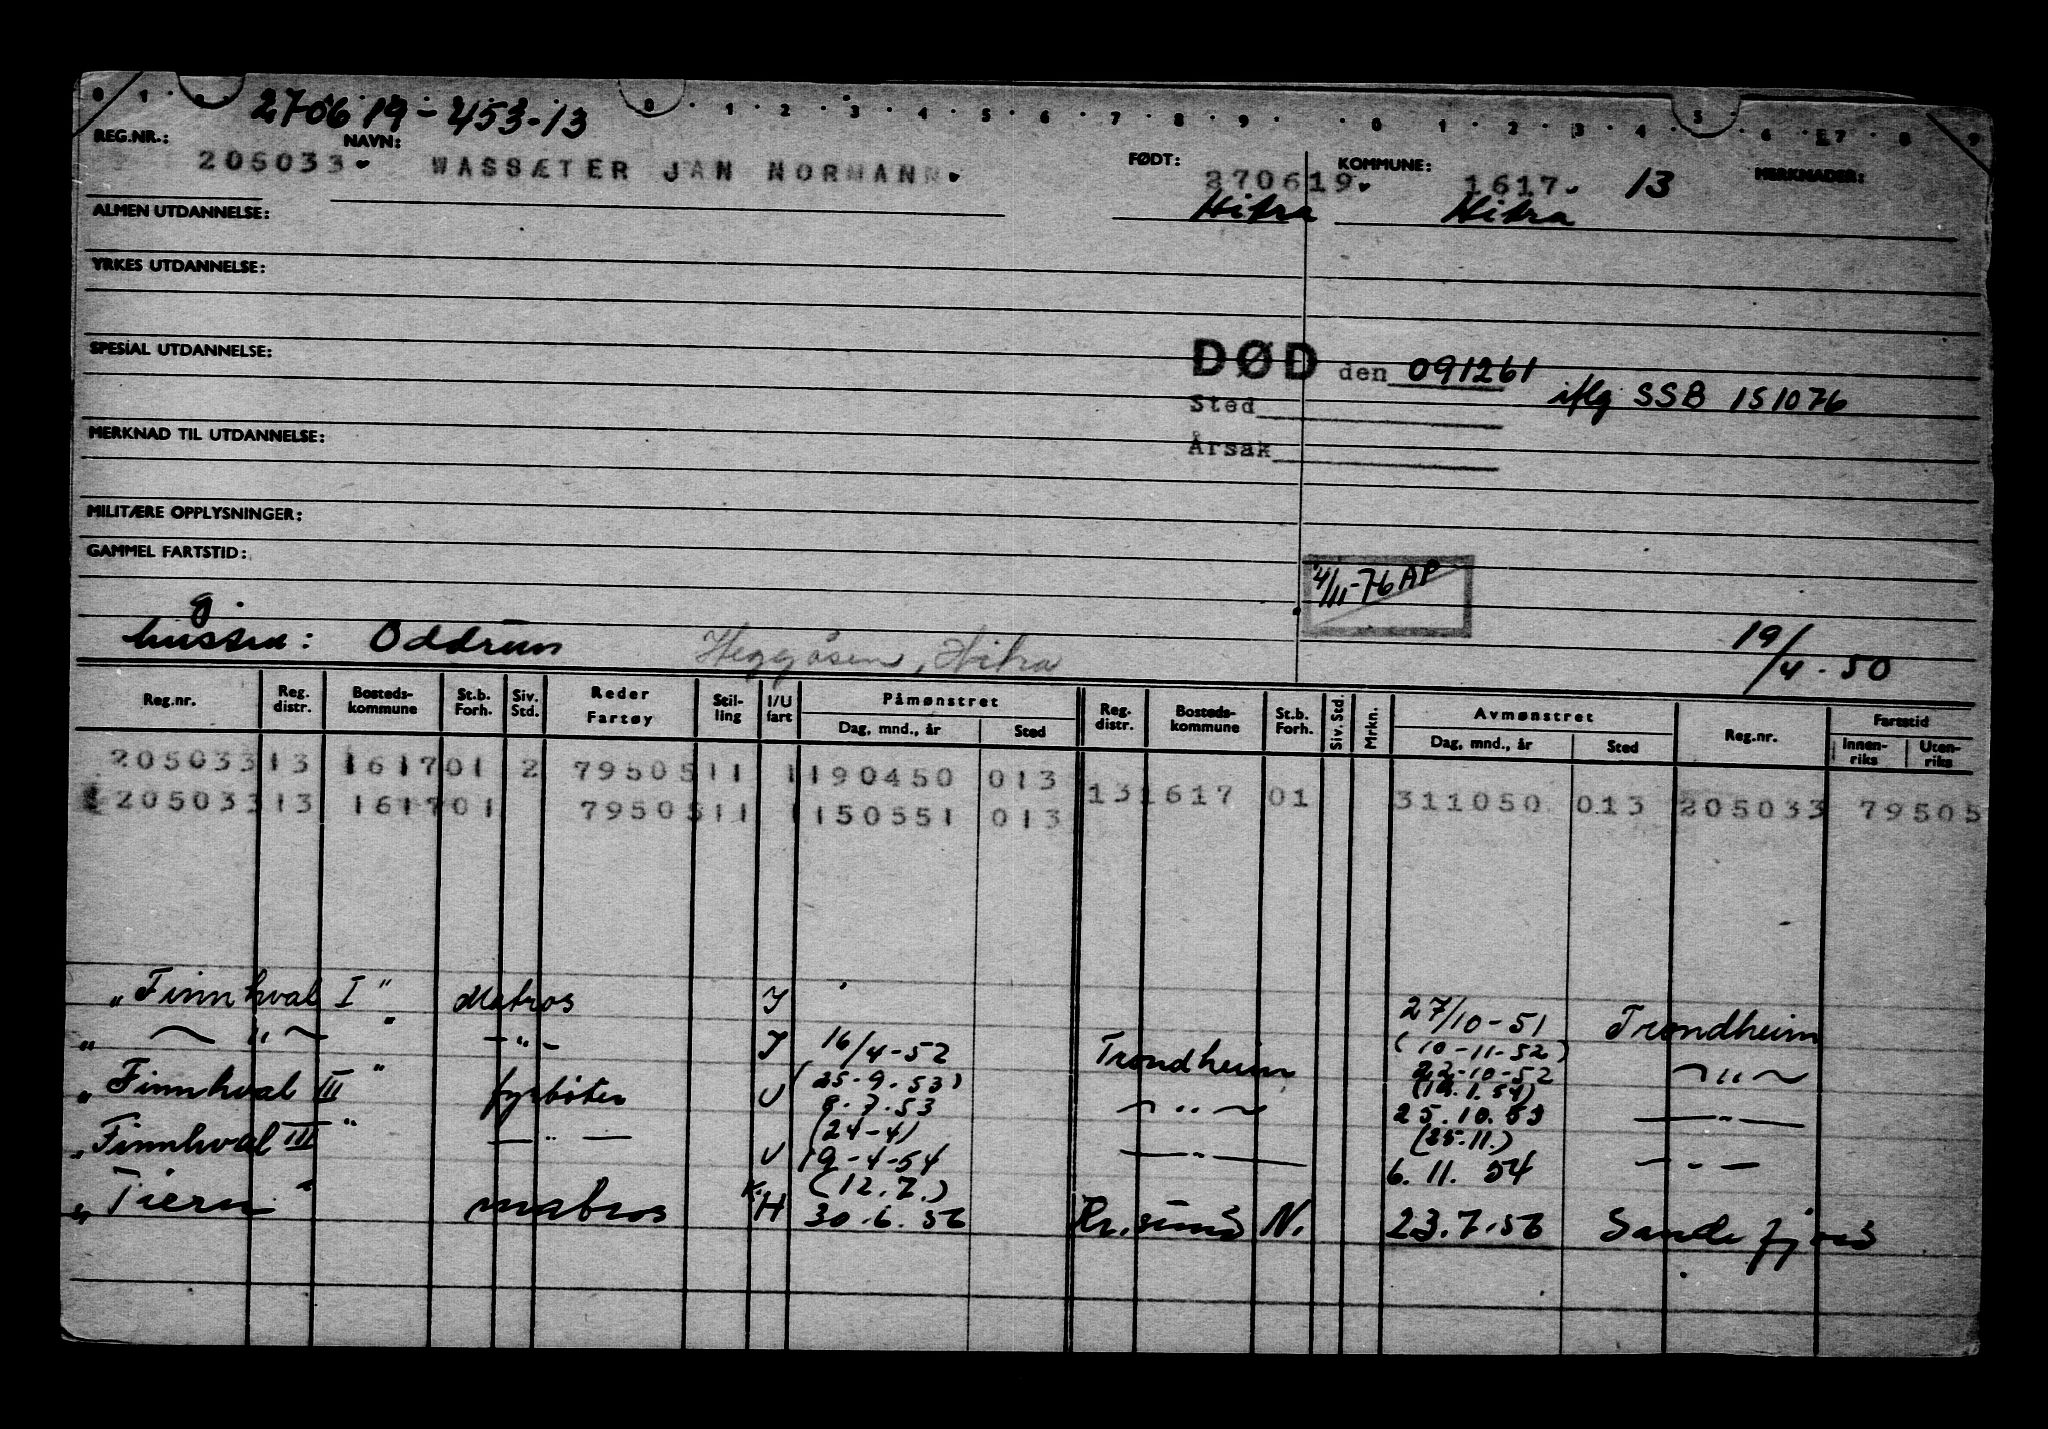 0 1 0 1 2 3 4 5 6 7 8 9 0 1 2 3 4 5 6 7 8 9
270619-453-13
REG.NR.: NAVN: FØDT: KOMMUNE: MERKNADER:
205033 WASSÆTER JAN NORMANN 270619 1617 13
Hitra Hitra
ALMEN UTDANNELSE:
YRKES UTDANNELSE:
SPESIAL UTDANNELSE:
DØD den 091261 iflg SSB 151076
Sted
Årsak
MERKNAD TIL UTDANNELSE:
MILITÆRE OPPLYSNINGER:
GAMMEL FARTSTID:
4/11-76 AP
g.
hustru: Oddrun Heggåsen, Hitra 19/4-50
Reg.nr. Reg. distr. Bosteds-kommune St.b. Forh. Siv. Std. Reder Fartøy Stil-ling I/U fart Påmønstret Dag, mnd., år Sted Reg. distr. Bosteds-kommune St.b. Forh. Siv. Std. Mrkn. Avmønstret Dag, mnd., år Sted Reg.nr. Fartstid Innen-riks Uten-riks
205033 13 1617 01 2 7950511 1 190450 013 13 1617 01 311050 013 205033 79505
205033 13 1617 01 7950511 1 150551 013
„Finnhval I" Matros I 27/10-51 Trondheim
„ — " — " — " — I 16/4-52 Trondheim (10-11-52) 22-10-52 — " —
„Finnhval III" fyrbøter U (25.9.53) 8.7.53 — " — (14.1.54) 25.10.53 — " —
„Finnhval III" — " — U (24-4) 19-4-54 — " — (25.11.) 6.11.54 — " —
„Tiern" matros K.H (12.7.) 30.6.56 Kr.sund N. 23.7.56 Sandefjord